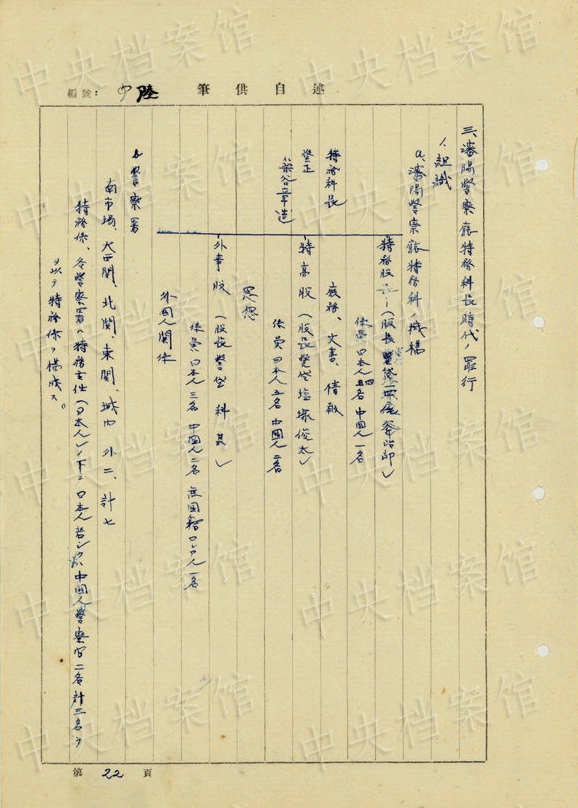 編號：
述自供筆
三、瀋陽警察廳特務科長時代ノ罪行
1、組織
a、瀋陽警察廳特務科ノ機構
特務科長
警正
特務股
庶務、文書、情報
係員 日本人四名 中國人一名
特高股（股長警佐塩塚俊太）
思想
係員 日本人五名 中國人二名
外事股（股長警佐
外國人関係
係員 日本人三名 中國人二名 無國籍ロシア人一名
b 警察署
南市場、大西関、北関、東関、城内 外二、計七
特務係、各警察署ハ特務主任（日本人）ノ下ニ日本人若シクハ中國人警察官二名計三名ヲ
以テ特務係ヲ構成ス。
第 22 頁
中央档案馆